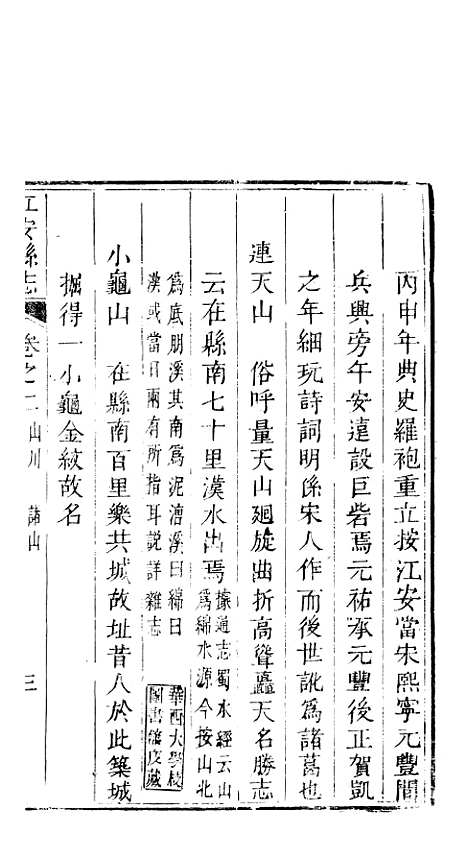 丙申年典史羅袍重立按江安當宋熙寧元豐間
兵興旁午安遠設巨砦焉元祐承元豐後正賀凱
之年細玩詩詞明係宋人作而後世訛為諸葛也
連天山　俗呼量天山廻旋曲折高聳矗天名勝志
云在縣南七十里漢水出焉據通志蜀水經云山
為綿水源今按山北
為底朋溪其南為泥漕溪曰綿曰
漢或當日兩有所指耳説詳雜志
小龜山　在縣南百里樂共城故址昔人於此築城
掘得一小龜金紋故名
江安縣志　卷之二　山川　諸山　三
華西大學校
圖書館庋藏